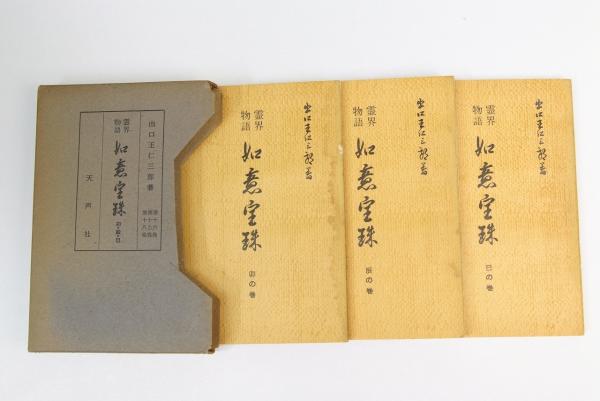 出口王仁三郎著
第十六巻
第十七巻
第十八巻
霊界
物語
如意宝珠
卯・辰・巳
天声社
出口王仁三郎著
霊界
物語
如意宝珠
卯の巻
出口王仁三郎著
霊界
物語
如意宝珠
辰の巻
出口王仁三郎著
霊界
物語
如意宝珠
巳の巻